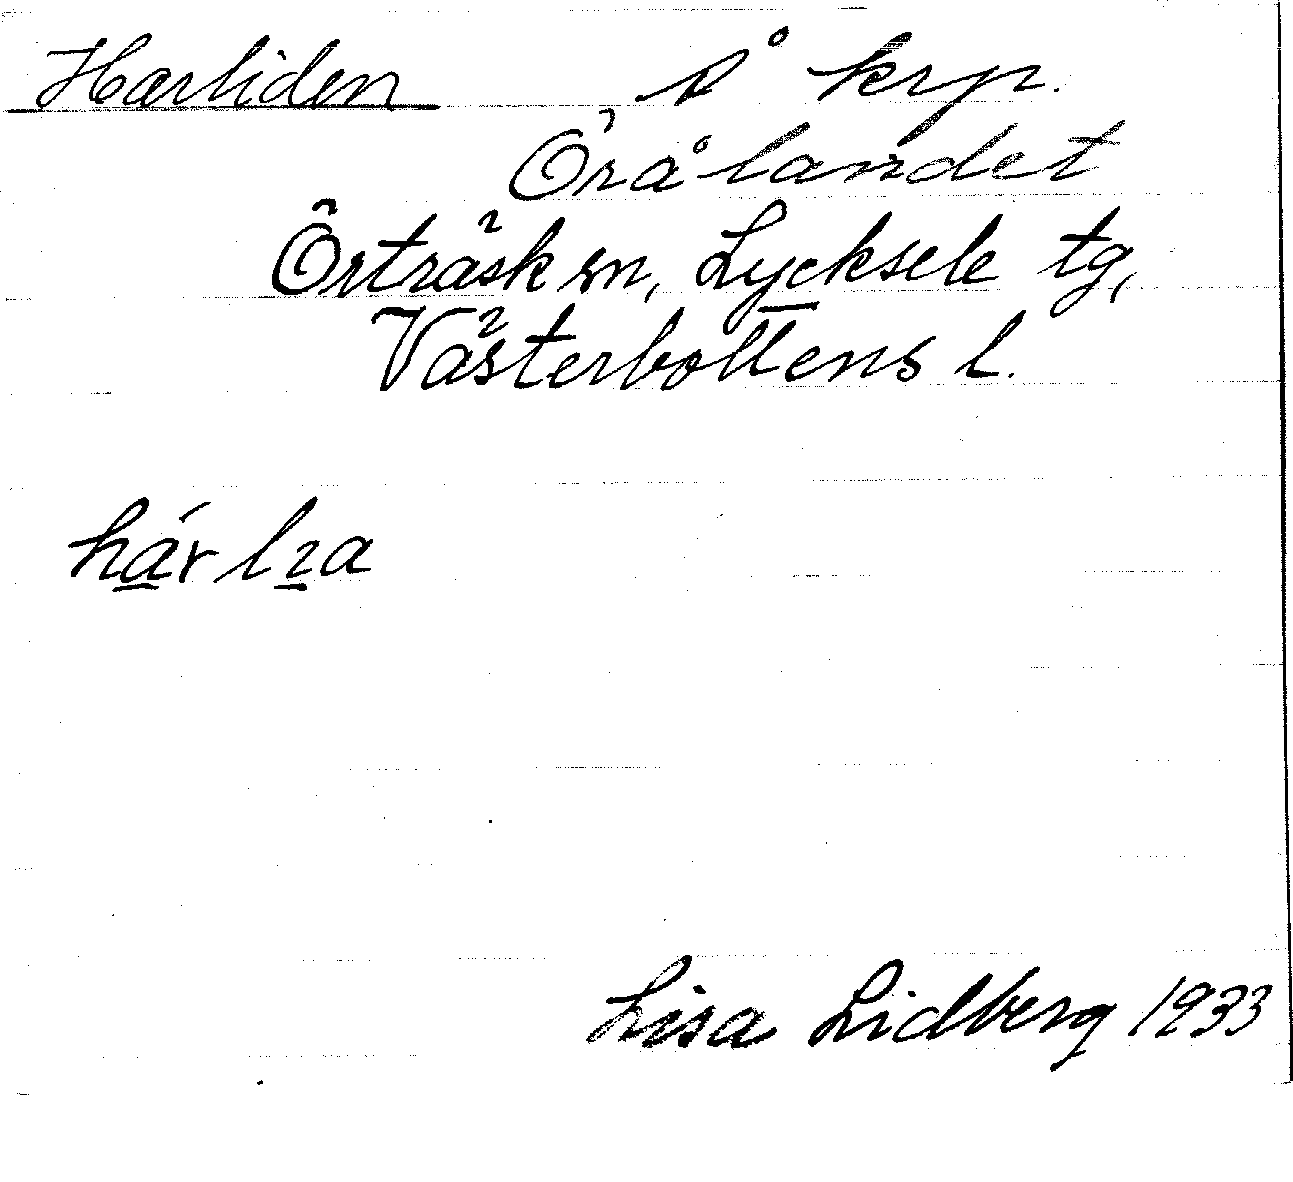 Harliden på krp.
Örålandet
Örträsk sn, Lycksele tg,
Västerbottens l.
Lisa Lidberg 1933